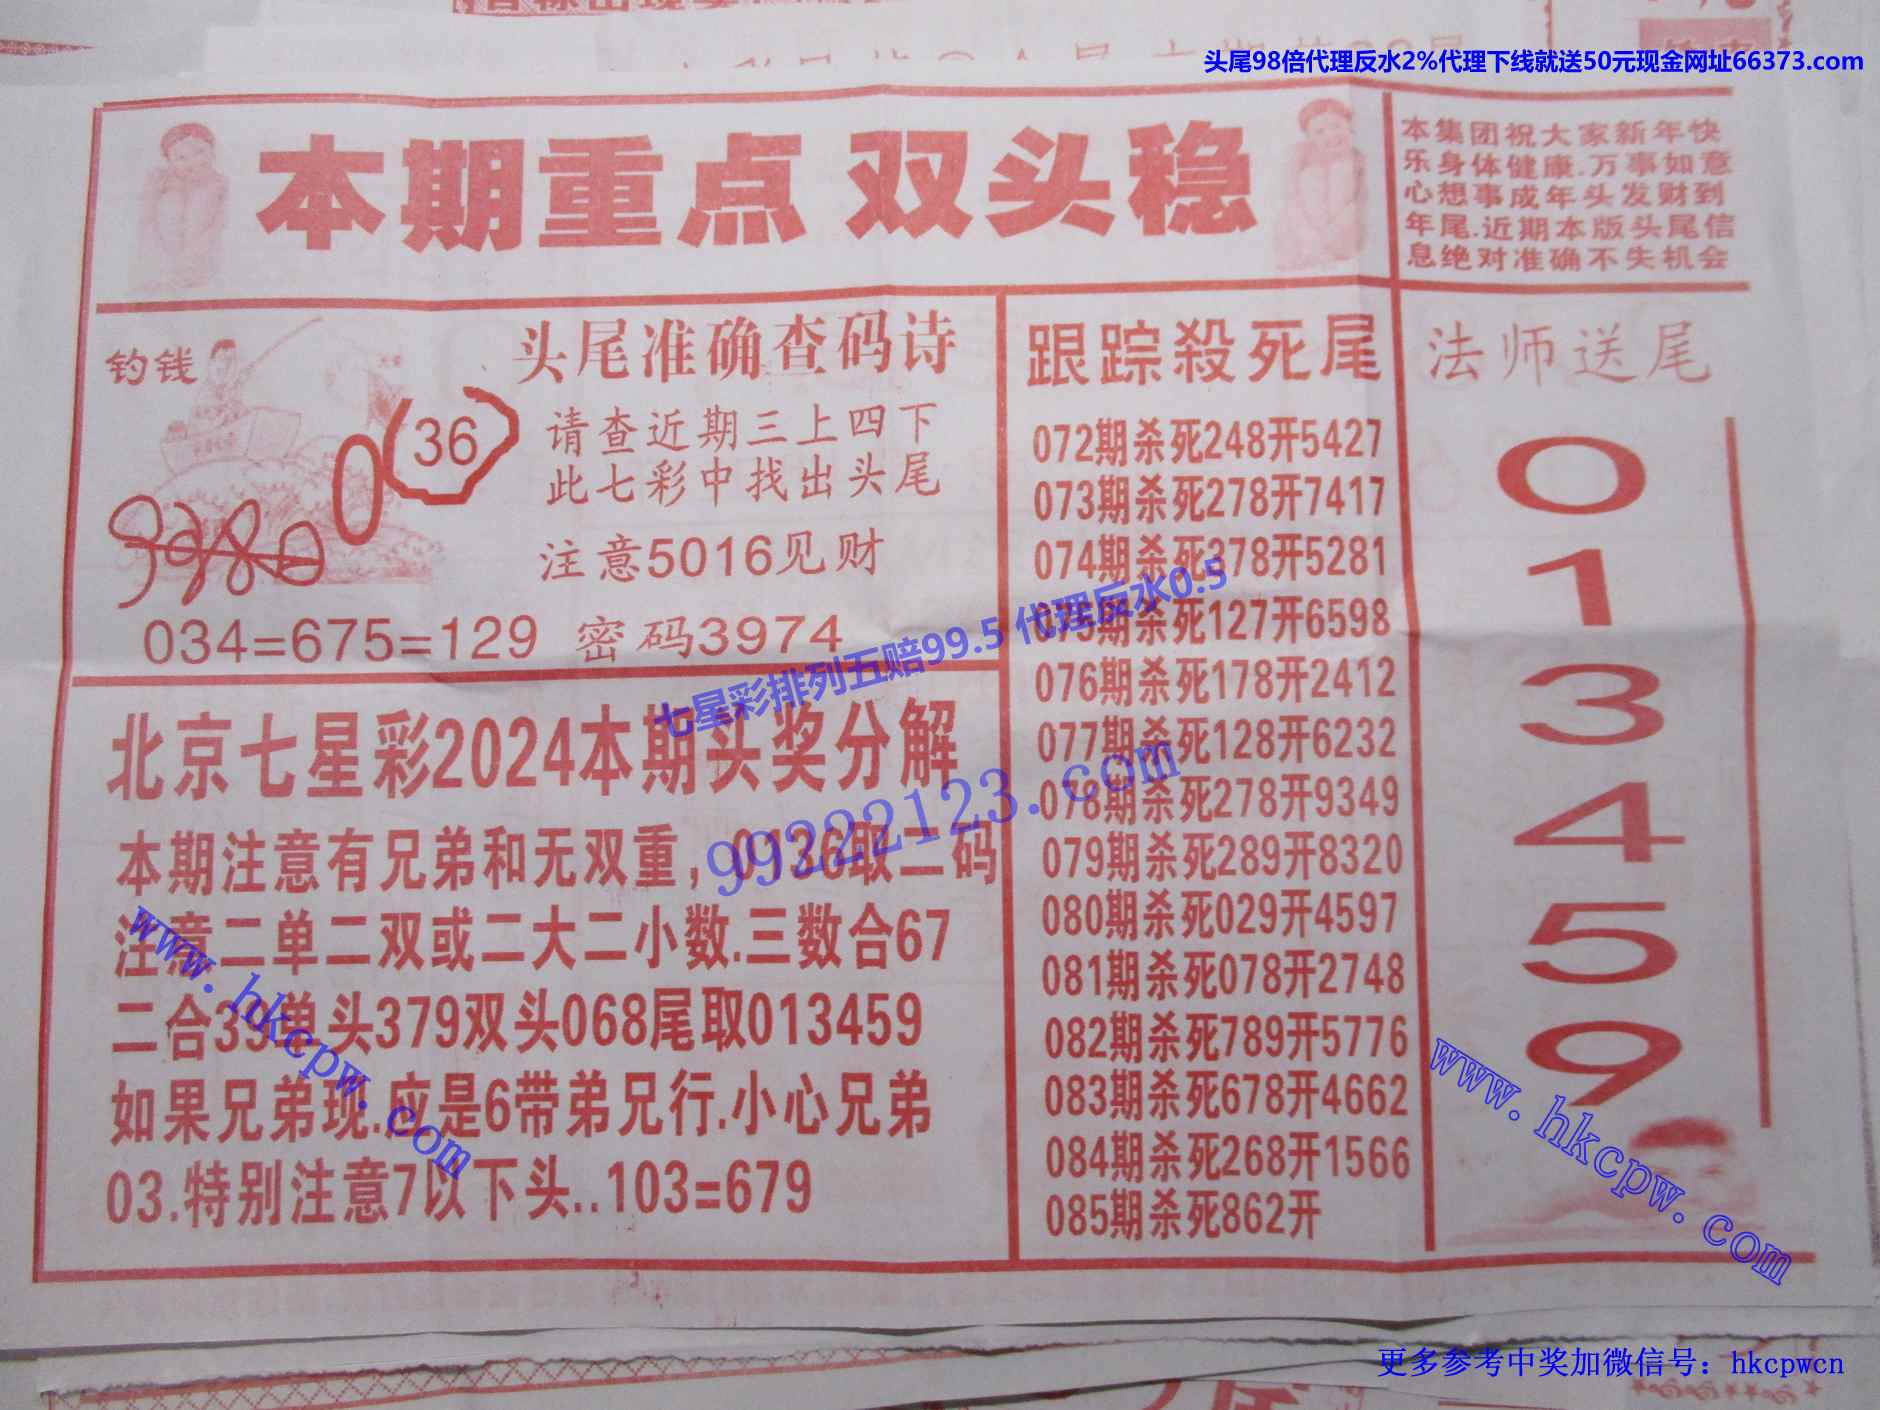 头尾98倍代理反水2%代理下线就送50元现金网址66373.com
本期重点 双头稳
本集团祝大家新年快
乐身体健康.万事如意
心想事成年头发财到
年尾.近期本版头尾信
息绝对准确不失机会
钓钱
0
36
9980
头尾准确查码诗
请查近期三上四下
此七彩中找出头尾
注意5016见财
034=675=129 密码3974
北京七星彩2024本期头奖分解
本期注意有兄弟和无双重，0136取二码
注意二单二双或二大二小数.三数合67
二合39单头379双头068尾取013459
如果兄弟现.应是6带弟兄行.小心兄弟
03.特别注意7以下头..103=679
跟踪殺死尾
072期杀死248开5427
073期杀死278开7417
074期杀死378开5281
075期杀死127开6598
076期杀死178开2412
077期杀死128开6232
078期杀死278开9349
079期杀死289开8320
080期杀死029开4597
081期杀死078开2748
082期杀死789开5776
083期杀死678开4662
084期杀死268开1566
085期杀死862开
法师送尾
0
1
3
4
5
9
七星彩排列五赔99.5 代理反水0.5
99222123.com
www.hkcpw.com
www.hkcpw.com
更多参考中奖加微信号：hkcpwcn